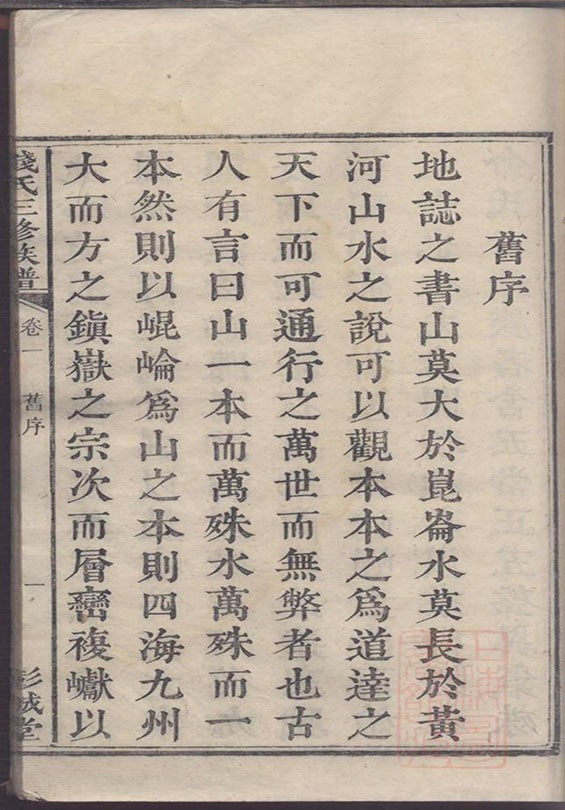 舊序
地誌之書山莫大於崑崙水莫長於黃
河山水之說可以觀本本之爲道達之
天下而可通行之萬世而無弊者也古
人有言曰山一本而萬殊水萬殊而一
本然則以崐崘爲山之本則四海九州
大而方之鎭嶽之宗次而層巒複巘以
錢氏三修族譜 卷一 舊序 一 彭城堂